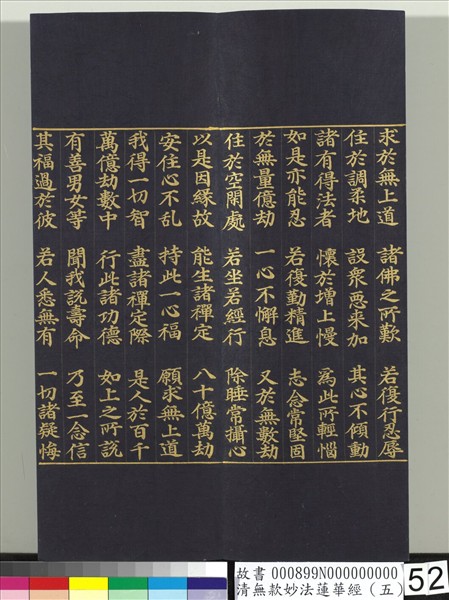 求於無上道 諸佛之所歎 若復行忍辱
住於調柔地 設衆惡來加 其心不傾動
諸有得法者 懷於增上慢 為此所輕惱
如是亦能忍 若復勤精進 志念常堅固
於無量億劫 一心不懈息 又於無數劫
住於空閑處 若坐若經行 除睡常攝心
以是因緣故 能生諸禪定 八十億萬劫
安住心不亂 持此一心福 願求無上道
我得一切智 盡諸禪定際 是人於百千
萬億劫數中 行此諸功德 如上之所說
有善男女等 聞我說壽命 乃至一念信
其福過於彼 若人悉無有 一切諸疑悔
故書 000899N000000000
清無款妙法蓮華經（五）
52